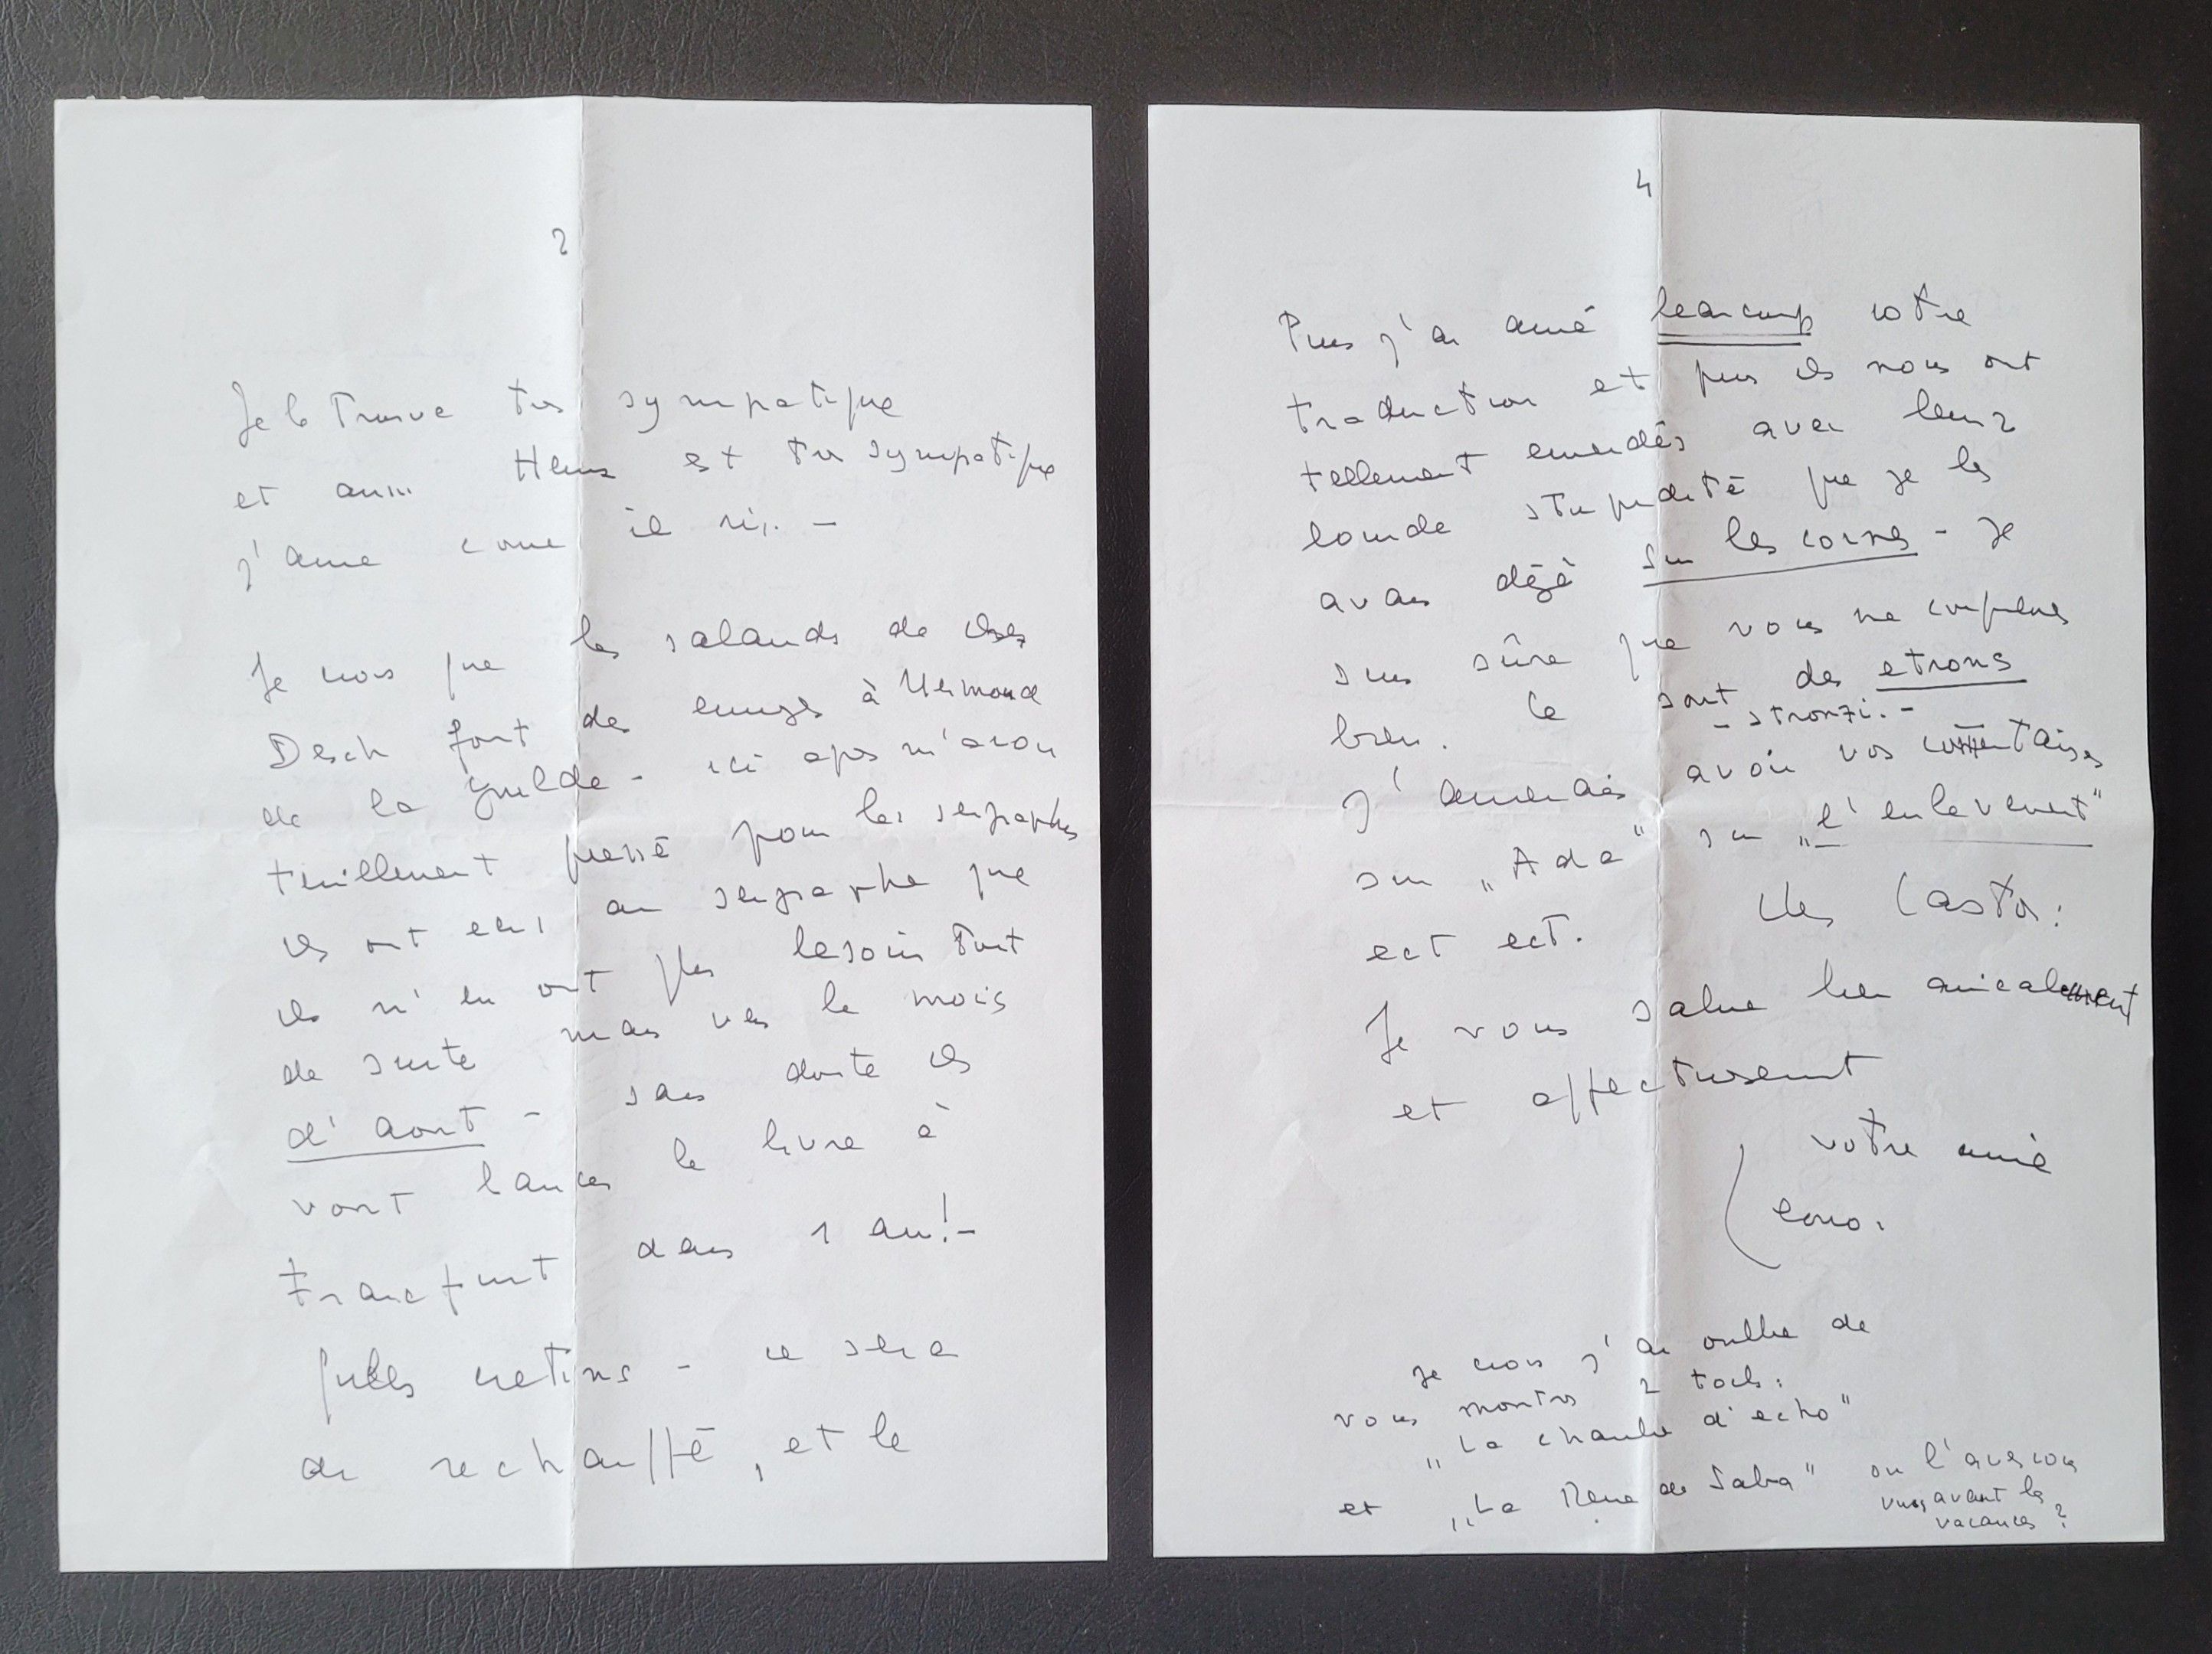 2
Je le trouve tres sympatique
et aussi Heinz est tres sympatique
j'aime come il ris. -
Je crois que les salauds de chez
Desch font des ennuys à Mermoud
de la guilde - ici apres m'avoir
teriblement pressé pour les serigraphes
ils ont ecris au serigraphe que
ils n'en ont pas besoin tout
de suite mais vers le mois
d'aout - sans doute ils
vont lancer le livre à
Francfurt dans 1 an! -
quels cretins - ce sera
du rechauffé, et le
4
Puis j'ai aimé beaucoup votre
traduction et puis ils nous ont
tellement emerdés avec leur
lourde stupidité que je les
avais déjà sur les cornes - Je
suis sûre que vous me comprenes
bien. Ce sont des etrons
- stronzi. -
J'aimerais avoir vos comentaires
sur „Ada" sur „l'enlevement"
ect ect. Casta:
Je vous salue bien amicalement
et affectusement
votre amie
Je crois j'ai oublie de
vous montrer 2 toiles:
„La chambre d'echo"
et „La Reine de Saba" ou l'aves vous
vues avant les
vacances?